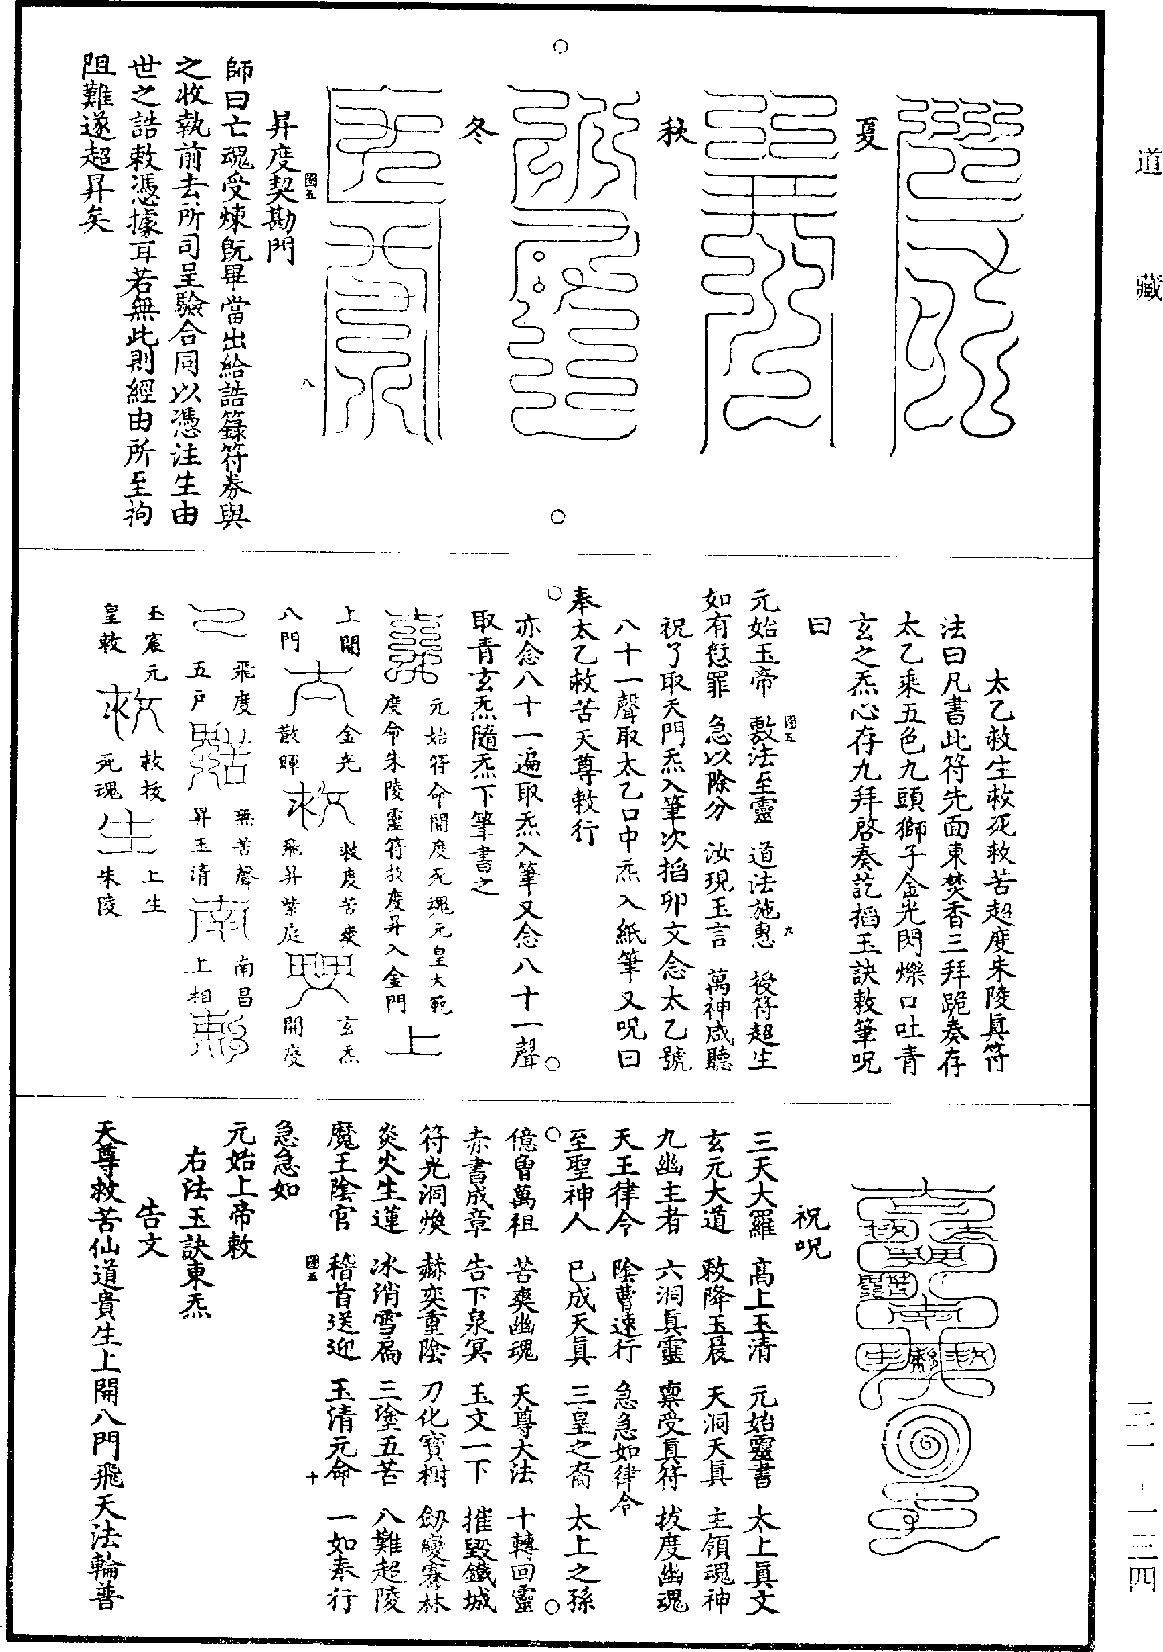 道藏
夏
秋
冬
昇度契勘門
師曰亡魂受煉既畢當出給誥籙符券與
之收執前去所司呈驗合同以憑注生由
世之誥敕憑據耳若無此則經由所至拘
阻難遂超昇矣
太乙救生救死救苦超度朱陵真符
法曰凡書此符先面東焚香三拜跪奏存
太乙乘五色九頭獅子金光閃爍口吐青
玄之炁心存九拜啓奏訖掐玉訣敕筆呪
曰
元始玉帝 敷法至靈 道法施惠 授符超生
如有愆罪 急以除分 汝現玉言 萬神咸聽
祝了取天門炁入筆次掐卯文念太乙號
八十一聲取太乙口中炁入紙筆又呪曰
奉太乙救苦天尊敕行
亦念八十一遍取炁入筆又念八十一聲
取青玄炁隨炁下筆書之
元始符命開度死魂元皇大範
度命朱陵靈符拔度昇入金門
上開
八門
金光
散暉
救度苦爽
飛昇紫庭
玄炁
開度
飛度
五戸
無苦聲
昇玉清
南昌
上相
玉宸元
皇敕
救拔
死魂
上生
朱陵
祝呪
三天大羅 高上玉清 元始靈書 太上真文
玄元大道 敕降玉晨 天洞天真 主領魂神
九幽主者 六洞真靈 稟受真符 拔度幽魂
天王律令 陰曹速行 急急如律令
至聖神人 已成天真 三皇之裔 太上之孫
億曾萬祖 苦爽幽魂 天尊大法 十轉回靈
赤書成章 告下泉冥 玉文一下 摧毀鐵城
符光洞煥 赫奕重陰 刀化寶樹 劒變騫林
炎火生蓮 冰消雪扃 三塗五苦 八難超陵
魔王陰官 稽首送迎 玉清元命 一如奉行
急急如
元始上帝敕
右法玉訣東炁
告文
天尊救苦仙道貴生上開八門飛天法輪善
三一-一三四